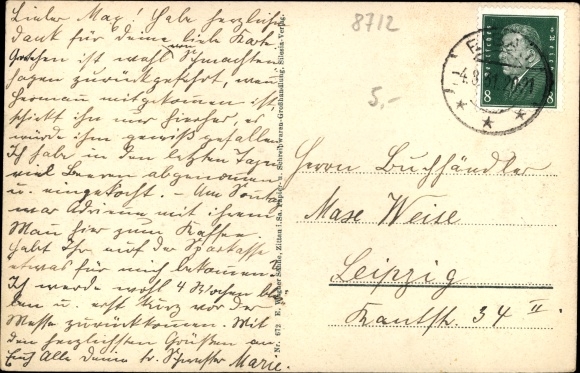 Lieber Max! Habe herzlichen
dank für deine liebe Karte
Gretchen ist wohl von Schmachten-
hagen zurückgeführt, wenn
Hermann mitgekommen ist,
schickt ihn nur hierher, es
würde ihm gewiß gefallen
Ich habe in den letzten Tagen
viel Beeren abgenommen
u. eingekocht. – Am Sonntag
war Adriene mit ihrem
Mann hier zum Kaffee.
Habt Ihr auf der Sparkasse
etwas für mich bekommen.
Ich werde wohl 4 Wochen blei-
ben u. erst kurz vor der
Messe zurückkommen. Mit
den herzlichsten Grüßen an
Euch Alle deine tr. Schwester Marie.
Nr. 672 Zittau i.Sa. Papier- u. Schreibwaren-Großhandlung, Silesia-Verlag.
8712
5,-
4.8.31
8 8
Herrn Buchhändler
Max Weise
Leipzig
Kantstr. 34 II